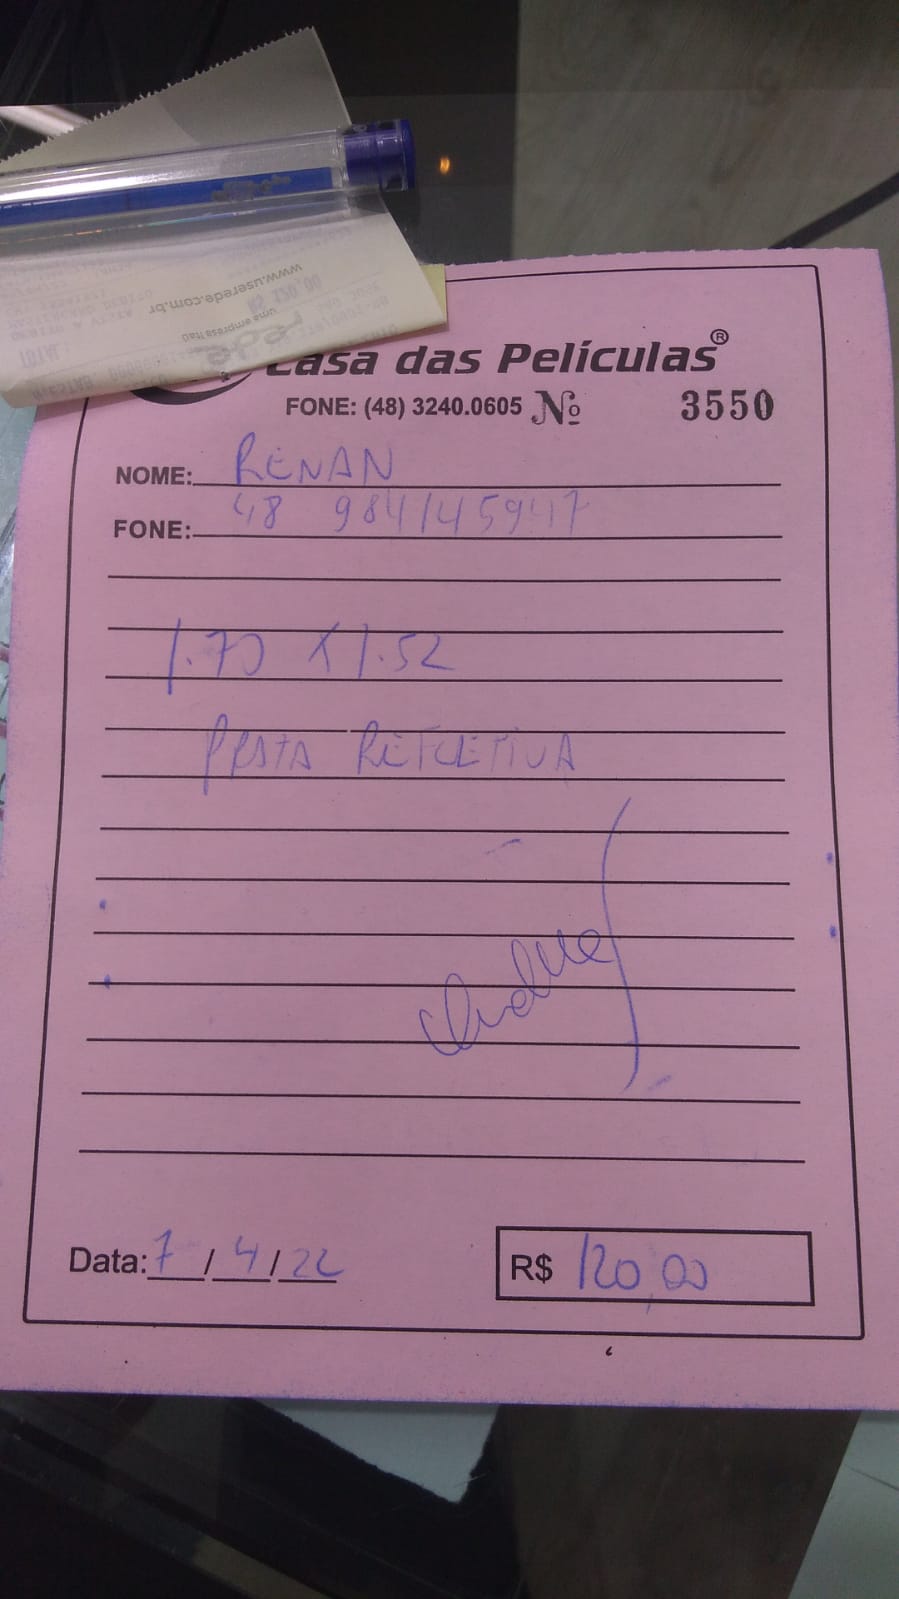 www.userede.com.br
uma empresa Itaú
rede
TOTAL:
Casa das Películas®
FONE: (48) 3240.0605 Nº 3550
NOME: RENAN
FONE: 48 984145947
1.70 X 1.52
PRATA REFLETIVA
Data: 7/4/22
R$ 120,00